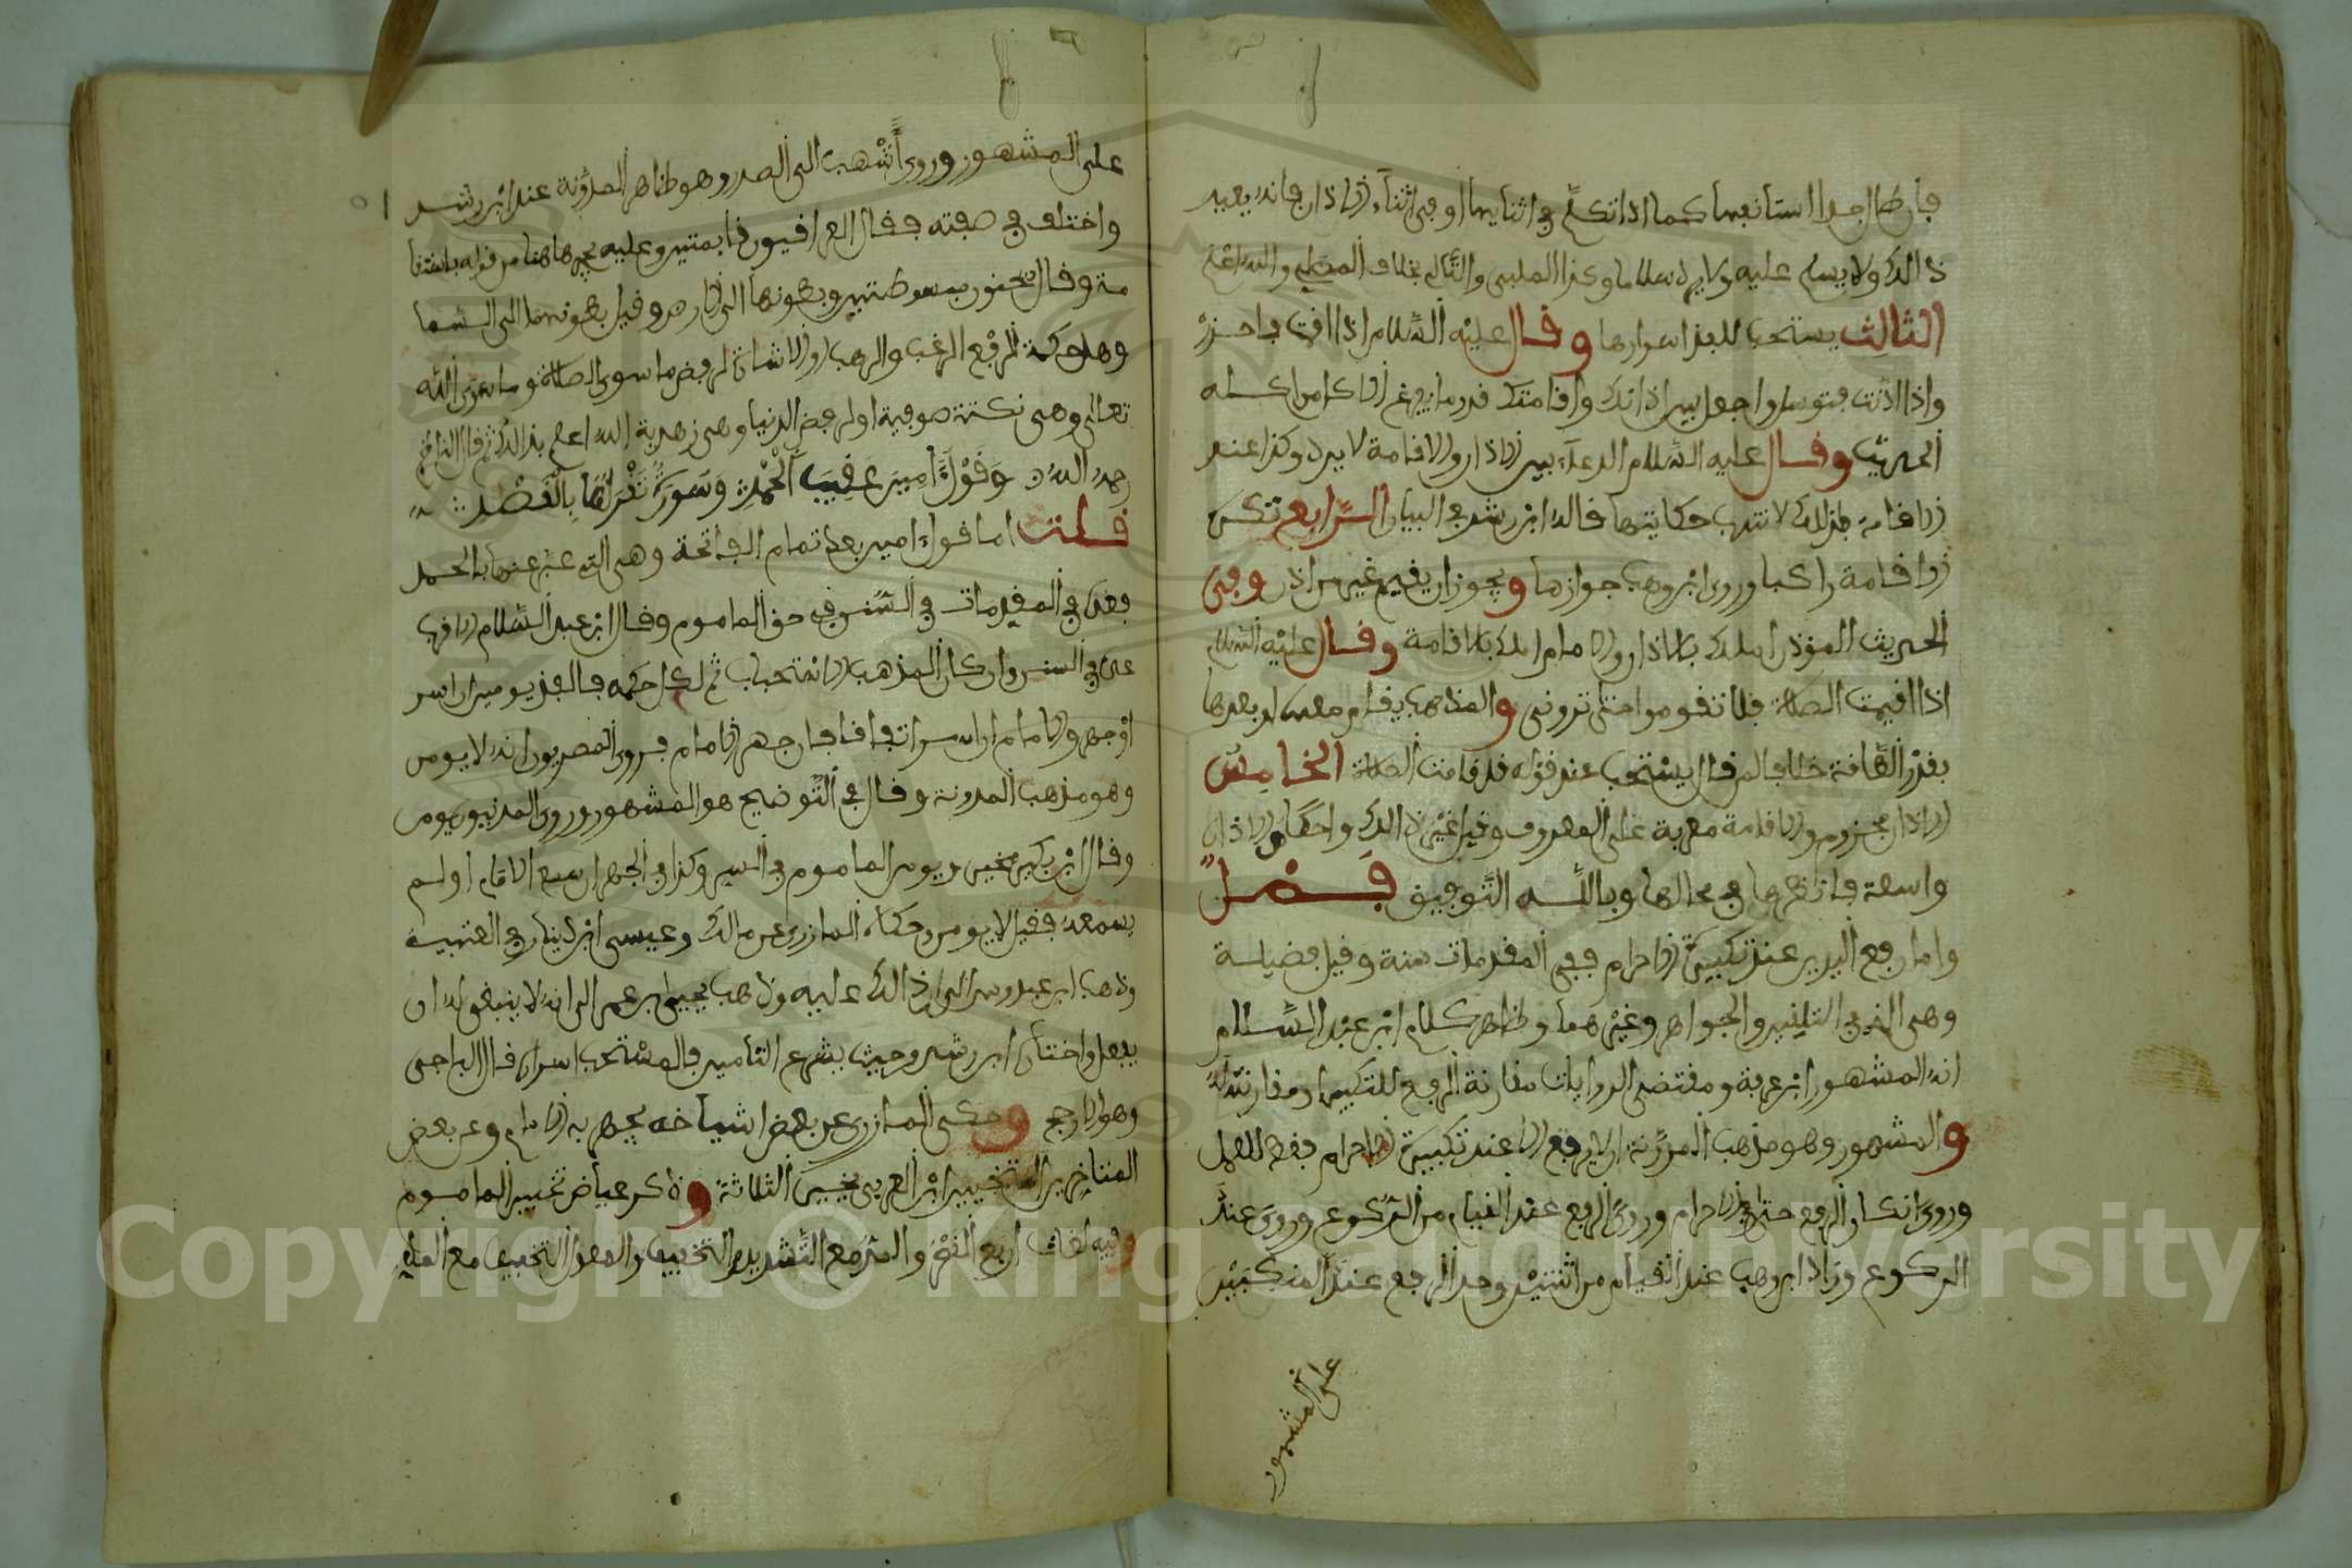 فإن طال جدا استأنفها كما اذا تكلم في اثنايها او في اثناء الاذان فانه يعيد
ذالك ولا يسلم عليه ولا يرد سلاما وكذا الملبي والله اعلم
الثالث يستحب للفذ اسرارها وقال عليه السلام اذا اقمت فاحذر
واذا اذنت فتوسل واجعل بين اذانك واقامتك قدر ما يفرغ الاكل من اكله
الحديث وقال عليه السلام الدعاء بين الاذان والاقامة لا يرد وكذا عند
الاقامة فلذلك لا تندب حكايتها قاله ابن رشد في البيان الرابع تكره
الاقامة راكبا وروى ابن وهب جوازها ويجوز ان يقيم غير من اذن وفي
الحديث المؤذن املك بالاذان والامام املك بالاقامة وقال عليه السلام
اذا اقيمت الصلاة فلا تقوموا حتى تروني والمذهب يقام معها او بعدها
بقدر الطاقة خلافا لمن قال يستحب عند قوله قد قامت الصلاة الخامس
الاذان مجزوم والاقامة معربة على المعروف وقيل غير ذالك واحكام الاذان
واسعة فانظرها في محالها وبالله التوفيق فصل
واما رفع اليدين عند تكبيرة الاحرام ففي المقدمات سنة وقيل فضيلة
وهي الذي في التلقين والجواهر وغيرهما وظاهر كلام ابن عبد السلام
انه المشهور ابن عرفة ومقتضى الروايات مقارنة الرفع للتكبير او مقارنته له
والمشهور وهو مذهب المدونة ان لا يرفع الا عند تكبيرة الاحرام فقط للعمل
وروي انكار الرفع حتى في الاحرام وروي الرفع عند القيام من الركوع وروي عند
الركوع وزاد ابن وهب عند القيام من اثنتين وحد الرفع عند المنكبين
على المشهور
على المشهور وروى أشهب الى الصدر وهو ظاهر المدونة عند ابن رشد
واختلف في صفته فقال العراقيون قائمتين وعليه يجري ما هنا من قوله
وقال سحنون مبسوطتين وبطونها الى الارض وقيل بطونهما الى السما
وهل حكمة الرفع الرغب والرهب او الاشارة لرفض ما سوى الصلاة وما سوى الله
تعالى وهي نكتة صوفية او لرفض الدنيا وهي زهدية الله اعلم بذالك ثم قال الناظم
رحمه الله وقول آمين عقيب الحمد وسورة تقرأها بالقصد
قلت اما قول امين بعد تمام الفاتحة وهي التي عبر عنها بالحمد
فعده في المقدمات في السنن في حق الماموم وقال ابن عبد السلام الاقرب
عده في السنن وان كان المذهب الاستحباب ثم لكل حكمه فالفذ يومن ان اسر
او جهر والامام ان اسر اتفاقا فان جهر الامام فروى المصريون انه لا يومن
وهو مذهب المدونة وقال في التوضيح هو المشهور وروى المدنيون يومن
وقال ابن بكير مخير ويومن الماموم في السر وكذا في الجهر ان سمع الامام او لم
يسمعه فقيل لا يومن وحكاه المازري عن مالك وعيسى ابن دينار في العتبية
وذهب ابن عبدوس الى ان ذالك عليه وذهب يحيى بن عمر الى انه لا ينبغي له ان
يفعل واختاره ابن رشد وحيث يشرع التأمين فالمستحب اسراره قال الباجي
وهو الارجح وحكى المازري عن بعض اشياخه يجهر به الامام وعن بعض
المتاخرين التخيير ابن العربي يخير الثلاثة وذكر عياض تخيير الماموم
وفيه لغات اربع القصر والمد مع التشديد والتخفيف والمعول التخفيف مع المد